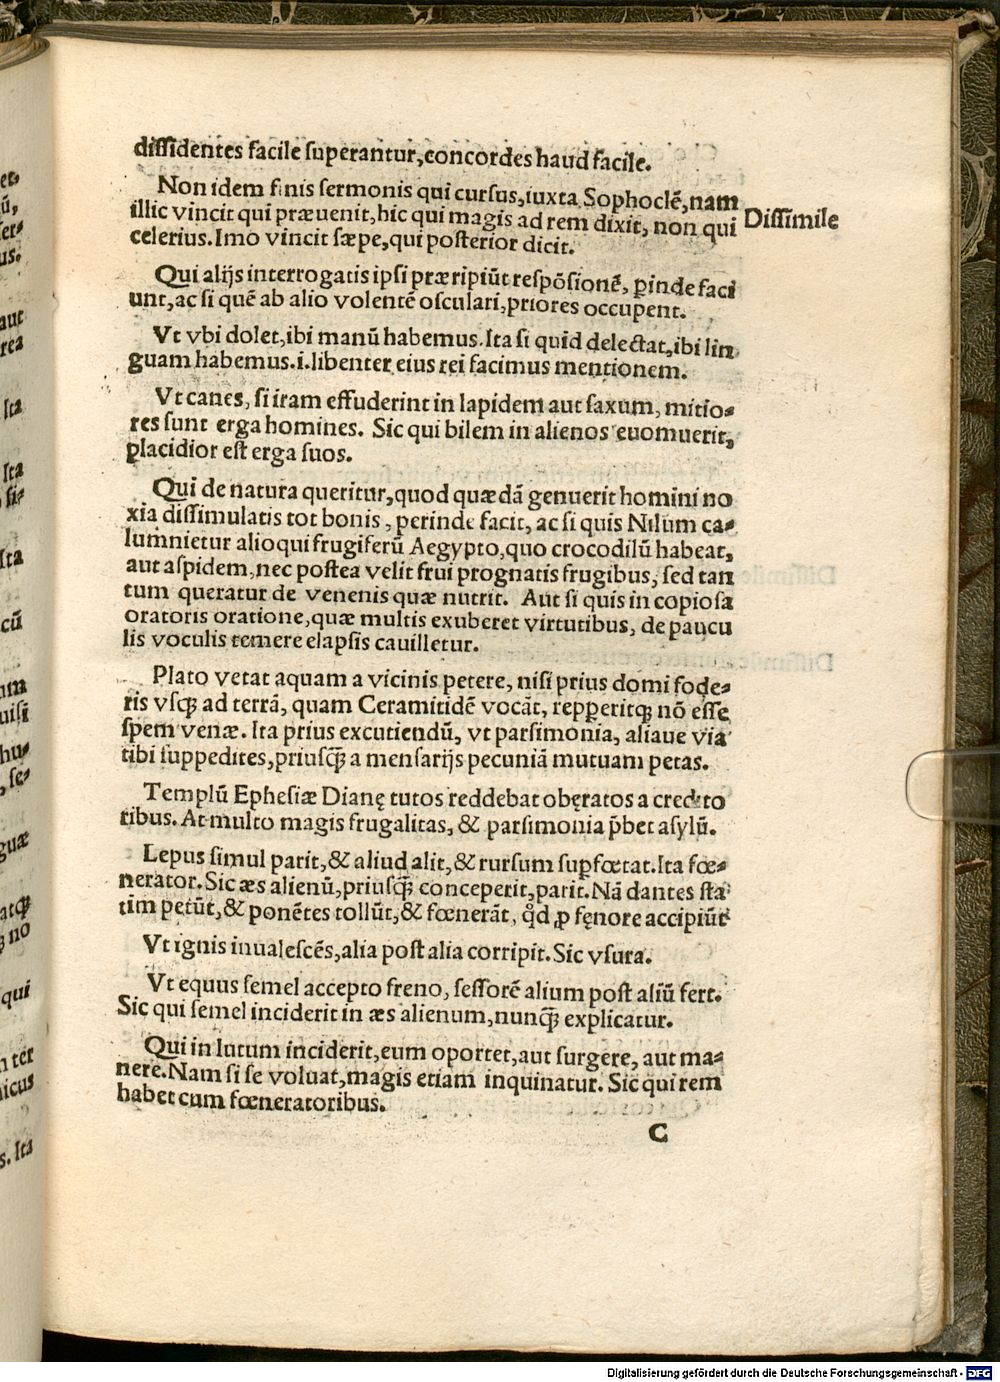 dissidentes facile superantur,concordes haud facile.
Non idem finis sermonis qui cursus,iuxta Sophoclē,nam
illic vincit qui præuenit,hic qui magis ad rem dixit, non qui
Dissimile
celerius.Imo vincit sæpe,qui posterior dicit.
Qui alijs interrogatis ipsi præripiūt respōsionē, ꝑinde faci
unt,ac si quē ab alio volentē osculari,priores occupent.
Vt vbi dolet,ibi manū habemus.Ita si quid delectat,ibi lin
guam habemus.i.libenter eius rei facimus mentionem.
Vt canes, si iram effuderint in lapidem aut saxum, mitio⸗
res sunt erga homines. Sic qui bilem in alienos euomuerit,
placidior est erga suos.
Qui de natura queritur,quod quædā genuerit homini no
xia dissimulatis tot bonis, perinde facit, ac si quis Nilum ca⸗
lumnietur alioqui frugiferū Aegypto,quo crocodilū habeat,
aut aspidem,nec postea velit frui prognatis frugibus, sed tan
tum queratur de venenis quæ nutrit. Aut si quis in copiosa
oratoris oratione,quæ multis exuberet virtutibus, de paucu
lis voculis temere elapsis cauilletur.
Plato vetat aquam a vicinis petere, nisi prius domi fode⸗
ris vsqꝫ ad terrā, quam Ceramitidē vocāt, repꝑeritqꝫ nō esse
spem venæ. Ita prius excutiendū, vt parsimonia, aliaue via
tibi suppedites,priusqꝫ̄ a mensarijs pecuniā mutuam petas.
Templū Ephesiæ Dianę tutos reddebat obęratos a credito
ribus. At multo magis frugalitas, & parsimonia p̄bet asylū.
Lepus simul parit,& aliud alit,& rursum suꝑfœtat.Ita fœ⸗
nerator.Sic æs alienū,priusqꝫ̄ conceperit,parit.Nā dantes sta
tim petūt,& ponētes tollūt,& fœnerāt, qd̊ ꝓ fęnore accipiūt
Vt ignis inualescēs,alia post alia corripit.Sic vsura.
Vt equus semel accepto freno, sessorē alium post aliū fert.
Sic qui semel inciderit in æs alienum,nunqꝫ̄ explicatur.
Qui in lutum inciderit,eum oportet,aut surgere, aut ma⸗
nere.Nam si se voluat,magis etiam inquinatur. Sic qui rem
habet cum fœneratoribus.
C
Digitalisierung gefördert durch die Deutsche Forschungsgemeinschaft - DFG